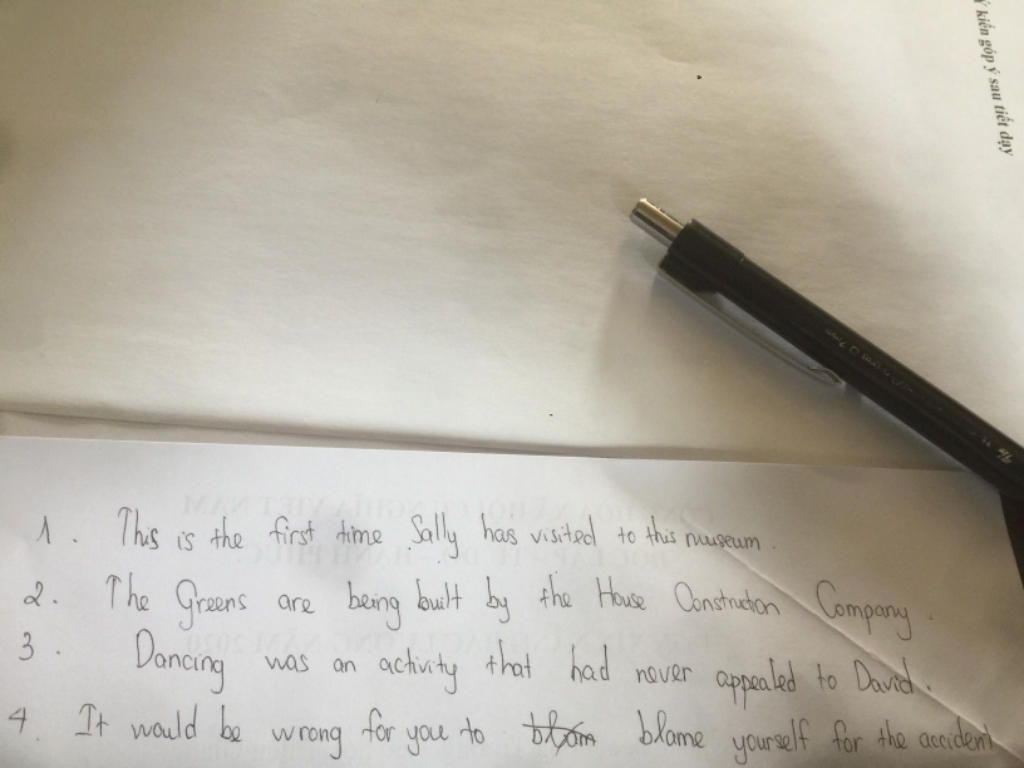 ý kiến góp ý sau tiết dạy
1. This is the first time Sally has visited to this museum.
2. The Greens are being built by the House Construction Company.
3. Dancing was an activity that had never appealed to David.
4. It would be wrong for you to blam blame yourself for the accident